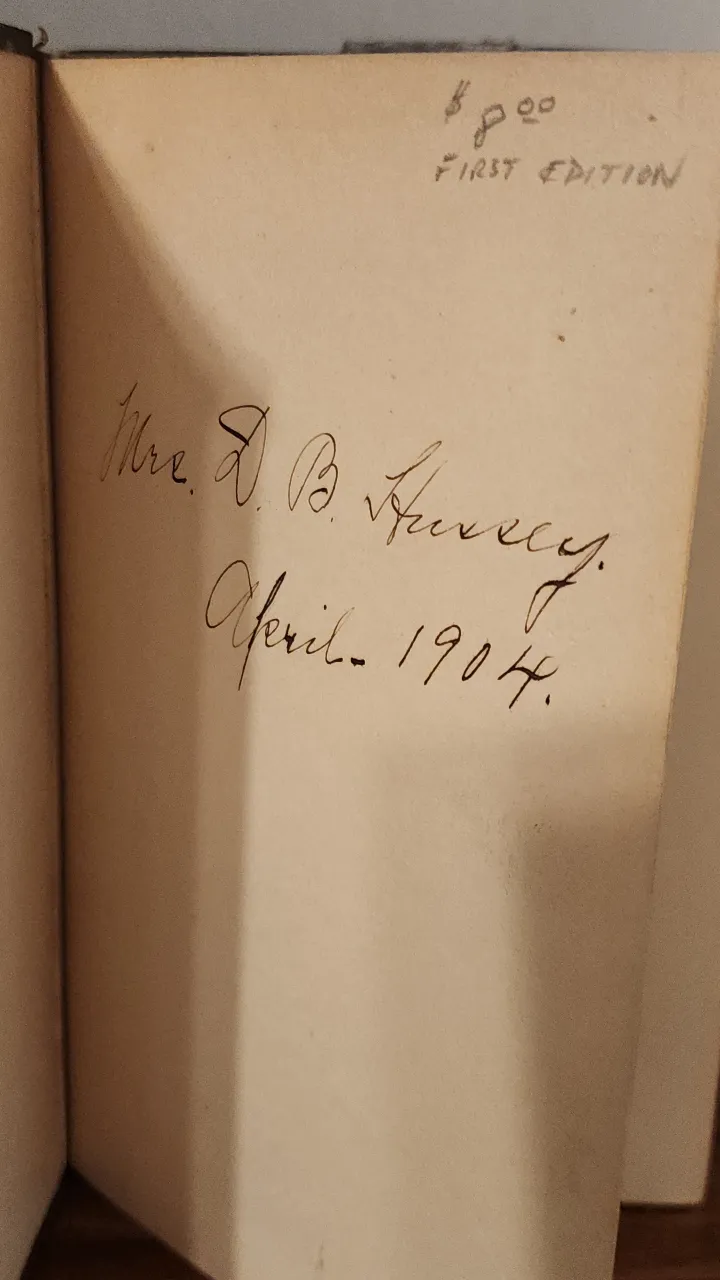 $ 8.00
FIRST EDITION
Mrs. D. B. Hussey.
April - 1904.